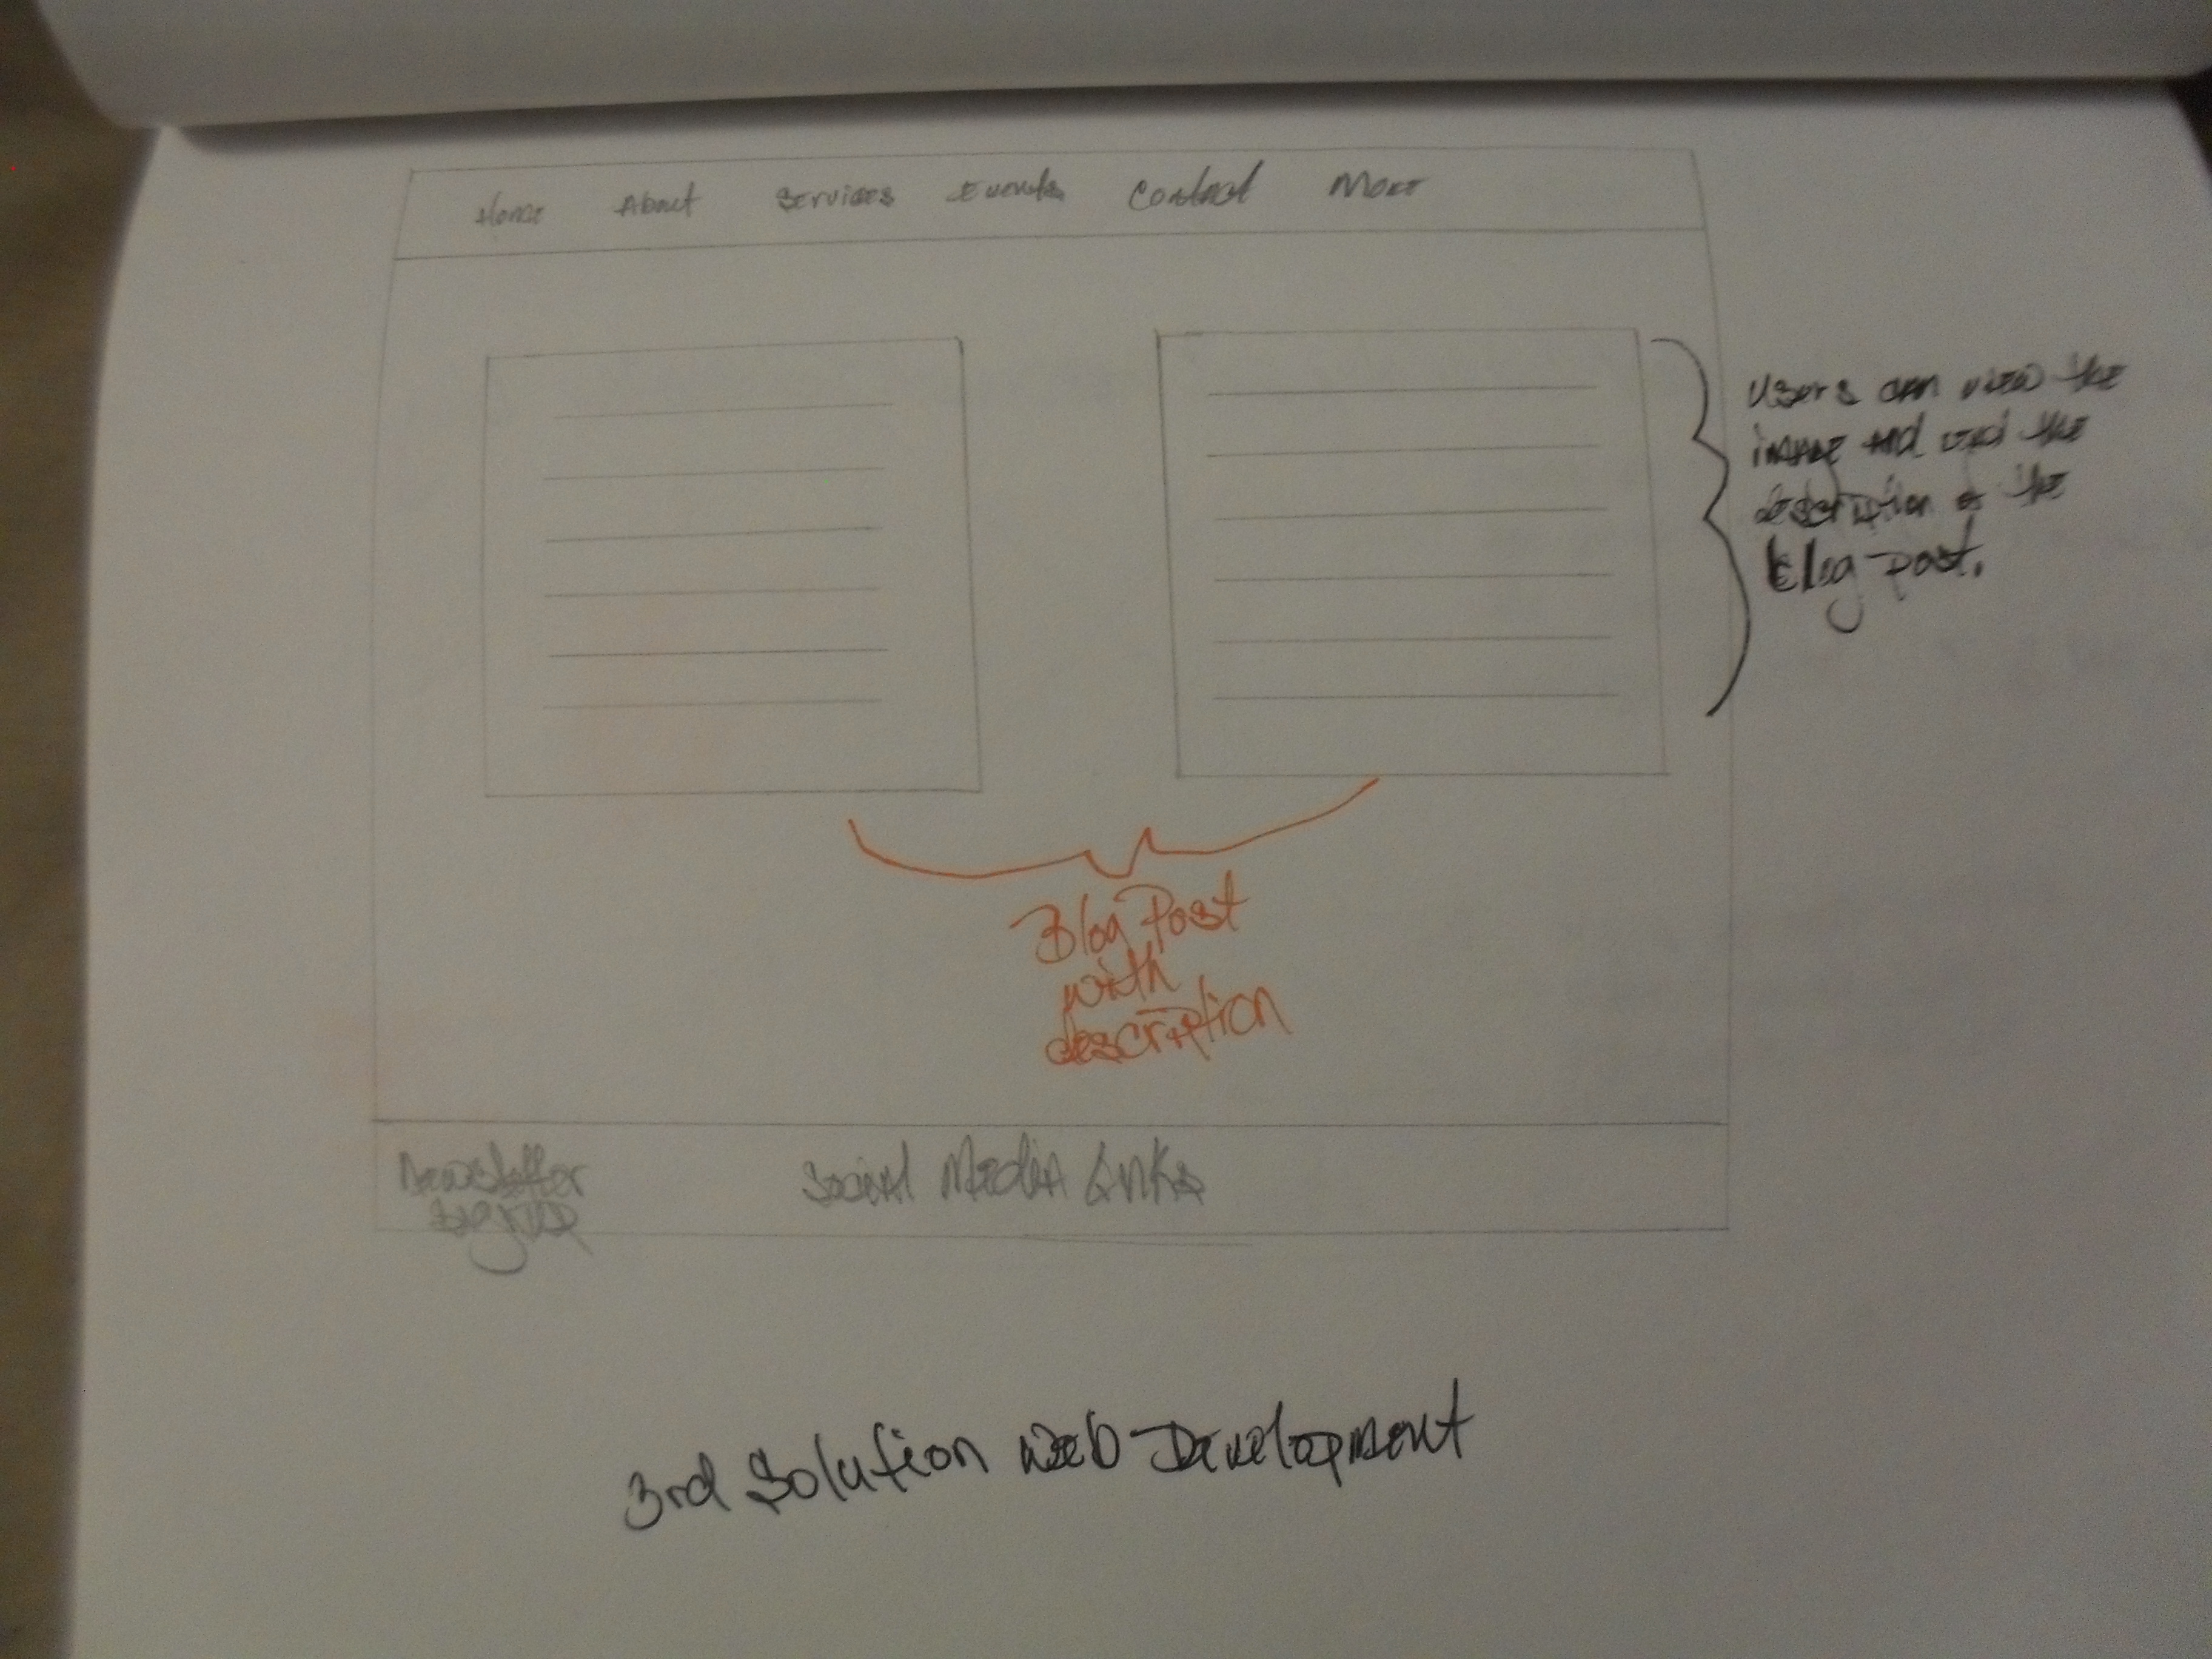 Home About Services Events Contact More
Users can view the
image and read the
description of the
blog post.
Blog Post
with
description
Newsletter
signup
Social Media Links
3rd Solution Web Development